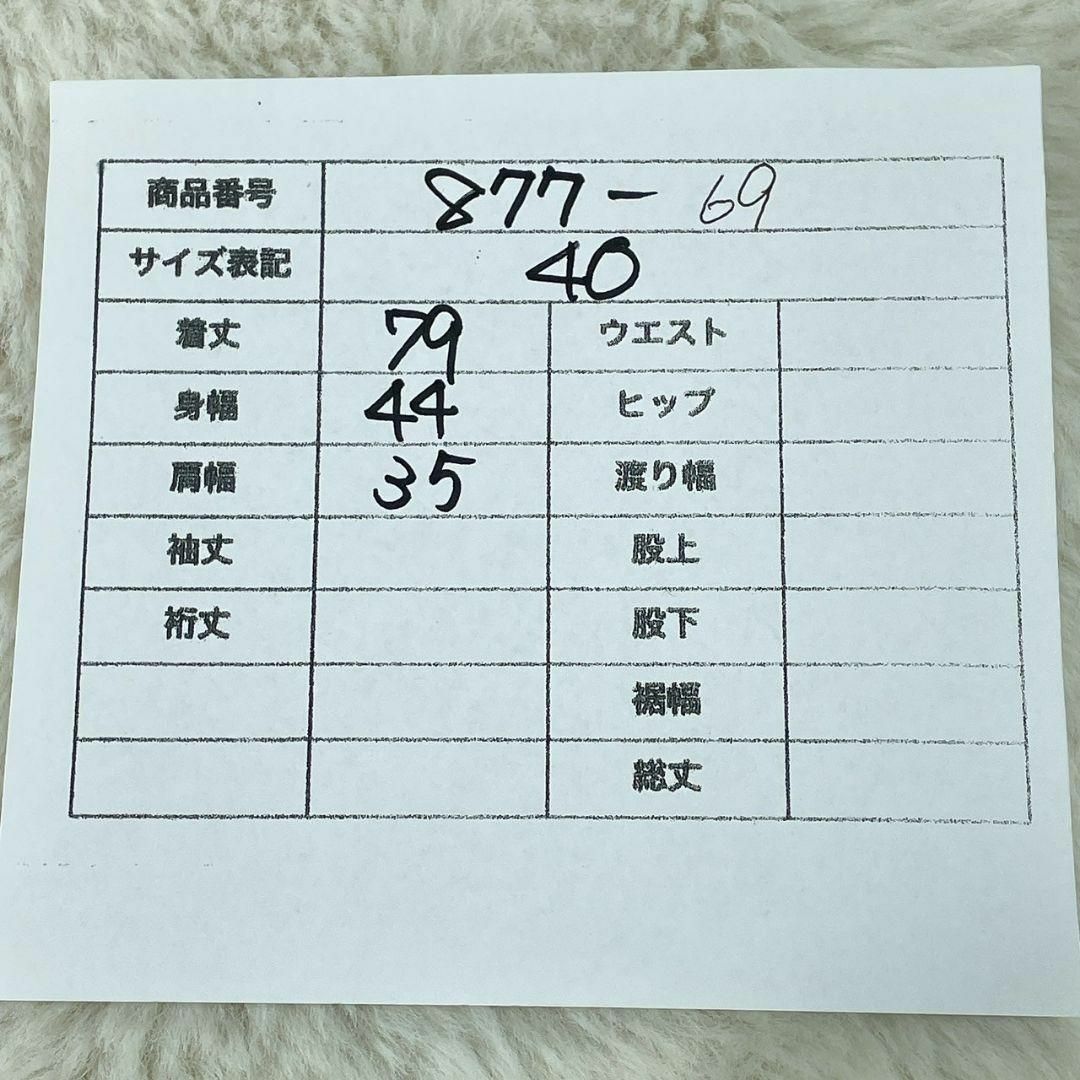 商品番号 877-69
サイズ表記 40
着丈 79 ウエスト
身幅 44 ヒップ
肩幅 35 渡り幅
袖丈 股上
裄丈 股下
裾幅
総丈